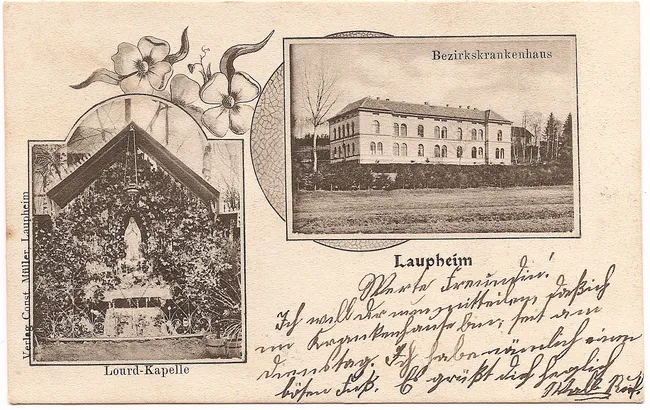 Bezirkskrankenhaus
Verlag Const. Müller, Laupheim
Laupheim
Lourd-Kapelle
Werte Freundin!
Ich will dir nun mitteilen daß ich
im Krankenhause bin, seit am
dienstag. Ich habe nämlich einen
bösen Fuß. Es grüßt dich herzlich